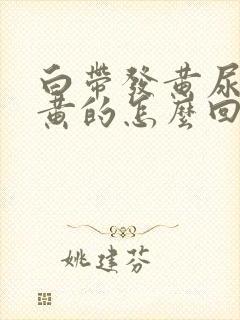 白帶發黃尿
黃的怎麼回
姚建芬